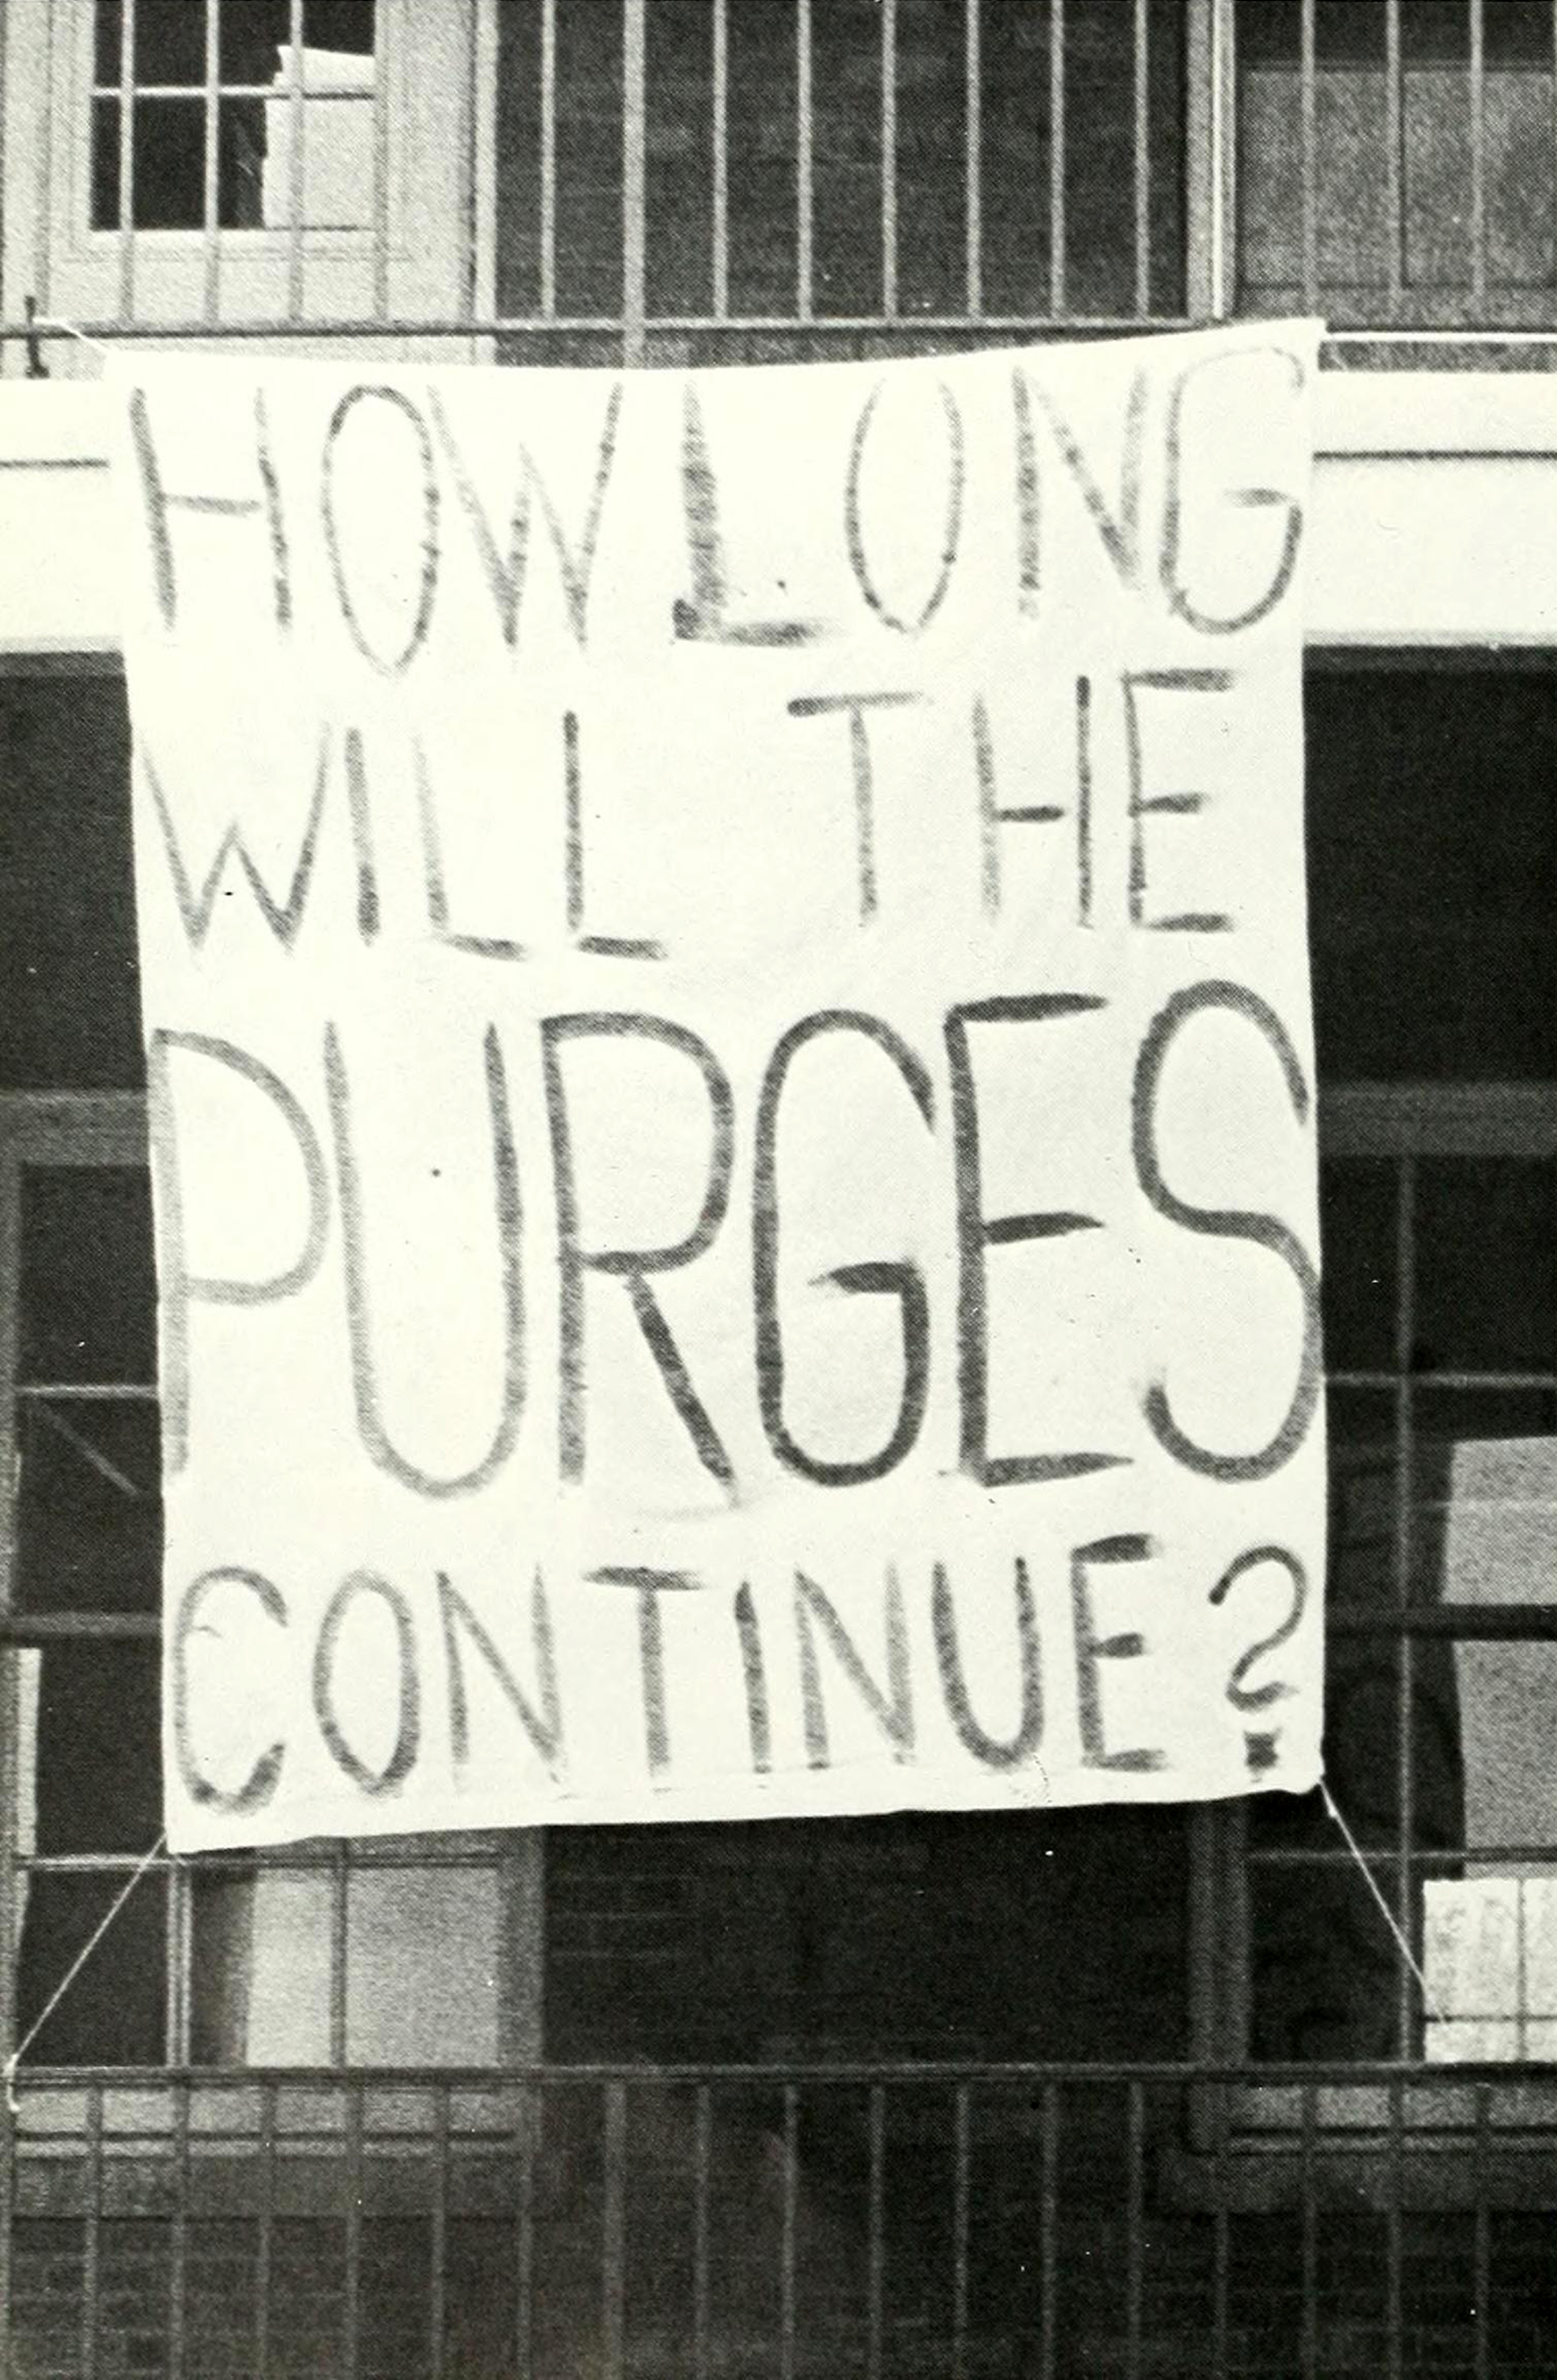 HOW LONG
WILL THE
PURGES
CONTINUE?